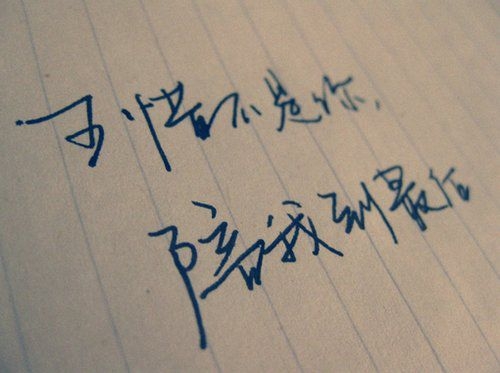 可惜不是你,
陪我到最后